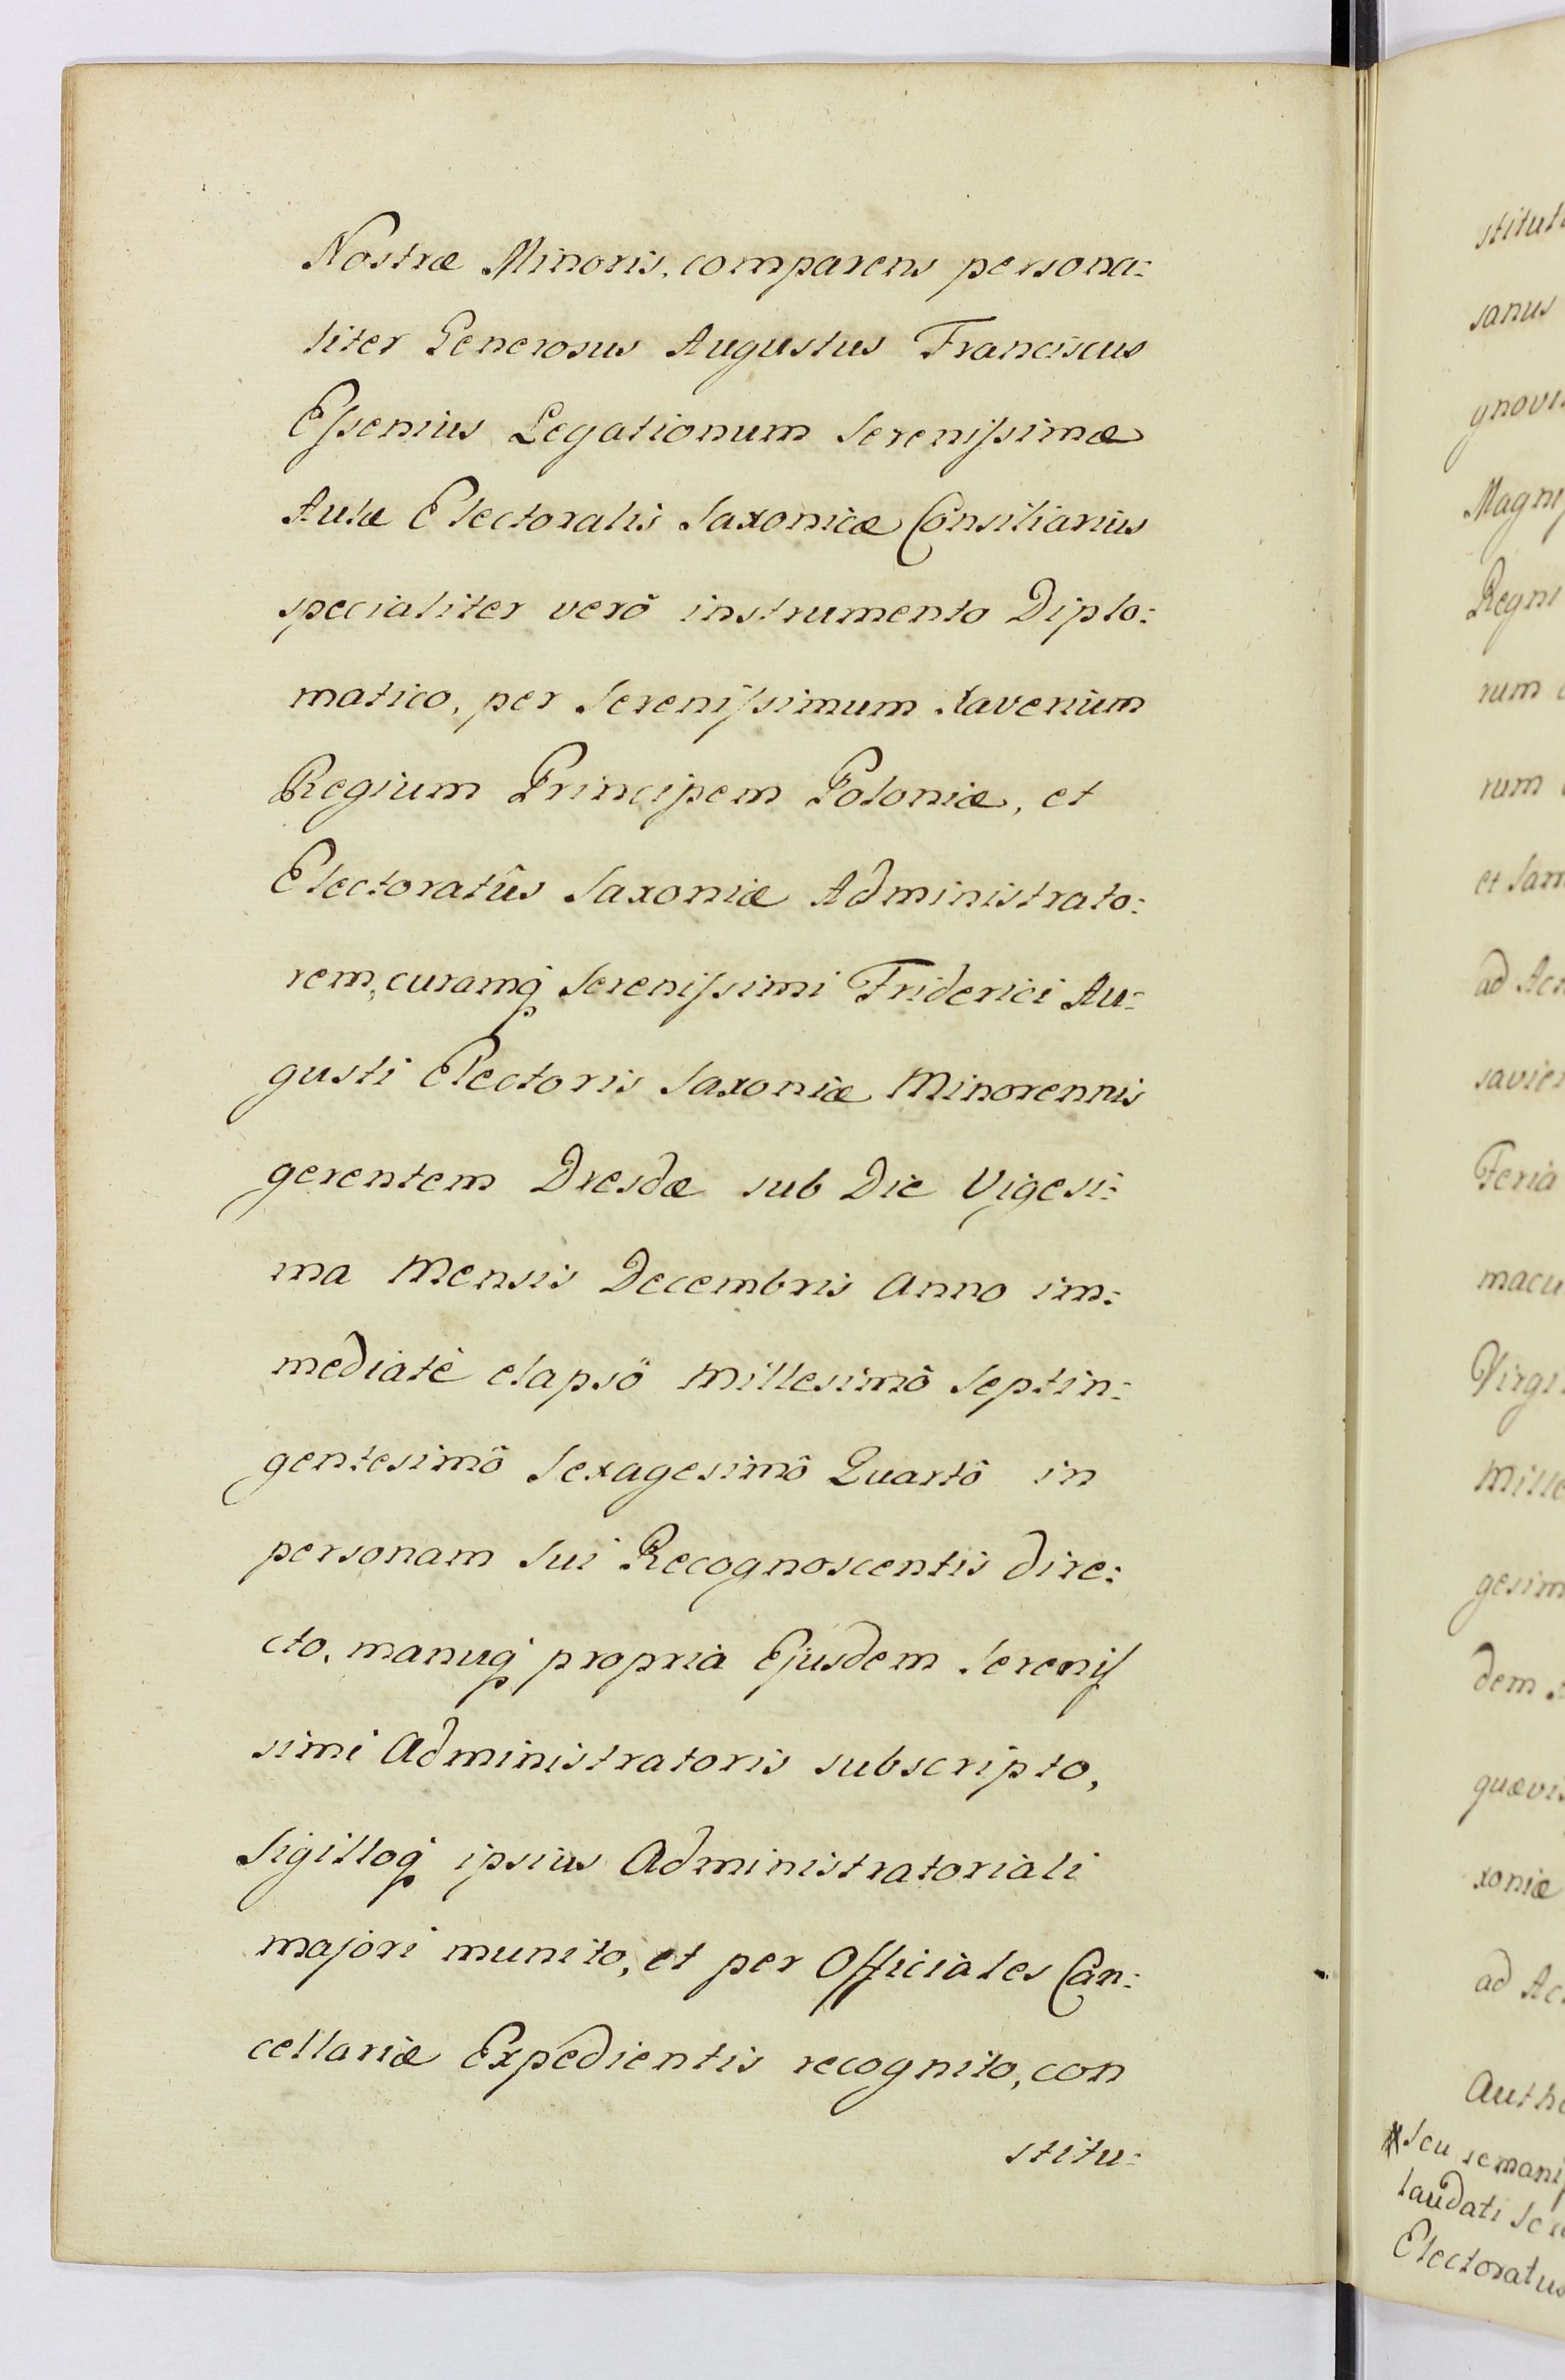 Nostræ Minoris, comparens persona:
liter Generosus Augustus Franciscus
Eſsenius Legationum Sereniſsimæ
Aulæ Electoralis Saxonicæ Consiliarius
specialiter verò instrumento Diplo:
matico, per Sereniſsimum Xaverium
Regium Principem Poloniæ, et
Electoratûs Saxoniæ Administrato:
rem, curamq Sereniſsimi Friderici Au:
gusti Electoris Saxoniæ Minorennis
gerentem Dresdæ sub Die Vigesi:
ma Mensis Decembris Anno im:
mediatè elapsô Millesimô Septin:
gentesimô Sexagesimô Quartô in
personam Sui Recognoscentis dire:
cto, manuq propria Ejusdem Sereniſ
simi Administratoris subscripto,
Sigilloq ipsius Administratoriali
majori munito, et per Officiales Can:
cellariæ Expedientis recognito, con
stitu:
stitut
sanus
gnovi
Magni
Regni
rum
rum
et San
ad Ac
savie
Feria
macu
Virgi
Mille
gesim
dem
quævis
xoniæ
ad Ac
Autho
Seu se mani
laudati Se
Electoratus